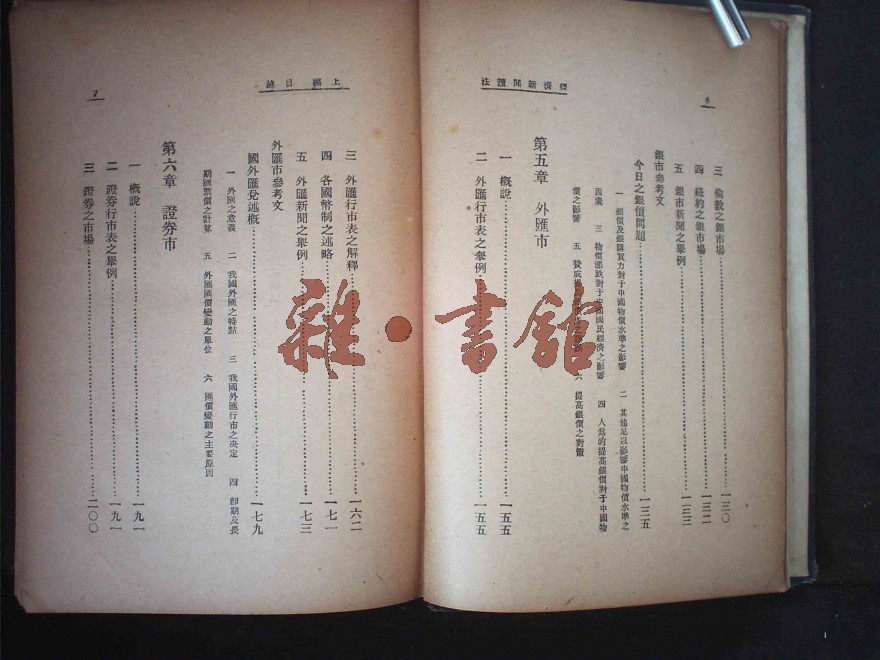 經濟新聞讀法
6
三　倫敦之銀市場……一三〇
四　紐約之銀市場……一三二
五　銀市新聞之舉例……一三三
銀市參考文
今日之銀價問題……一三五
一　銀價及銀購買力對于中國物價水準之影響　二　其他足以影響中國物價水準之
四素　三　物價漲跌對于中國國民經濟之影響　四　人為的提高銀價對于中國物
價之影響　五　贊成　六　提高銀價之對策
第五章　外匯市
一　概說……一五五
二　外匯行市表之舉例……一五五
上編　目錄
7
三　外匯行市表之解釋……一六二
四　各國幣制之述略……一七一
五　外匯新聞之舉例……一七三
外匯市參考文
國外匯兌述概……一七九
一　外匯之意義　二　我國外匯之特點　三　我國外匯行市之决定　四　卽期及長
期匯票價之計算　五　外匯匯價變動之單位　六　匯價變動之主要原因
第六章　證券市
一　概說……一九一
二　證券行市表之舉例……一九一
三　證券之市場……二〇〇
雜·書館